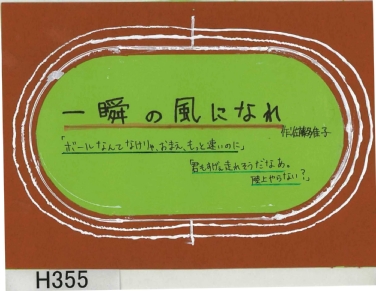 一瞬の風になれ
作:佐藤多佳子
「ボールなんてなけりゃ、おまえ、もっと速いのに」
「君もすげえ走れそうだなあ。
陸上やらない?」
H355